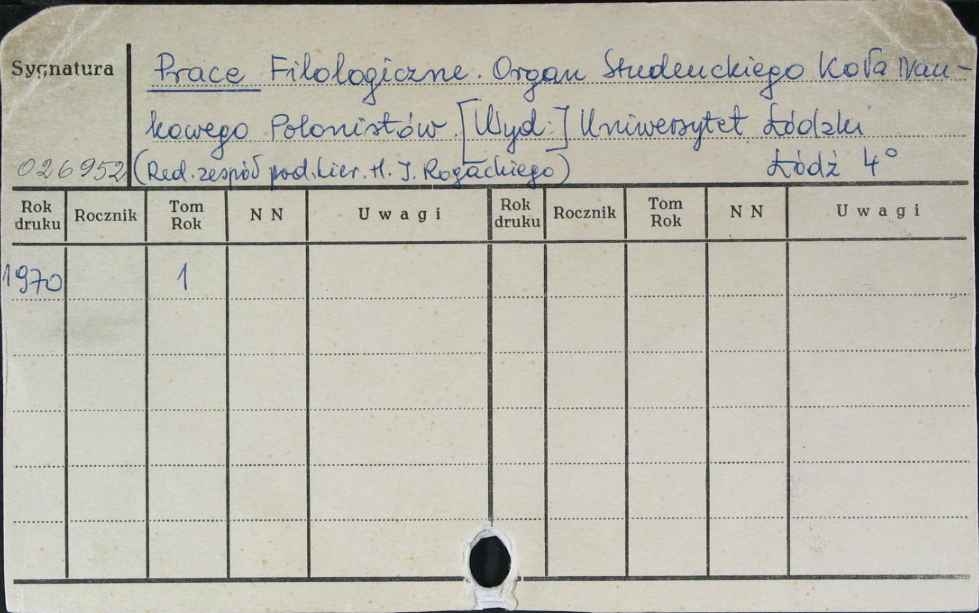 Sygnatura
Prace Filologiczne. Organ Studenckiego Koła Nau-
kowego Polonistów. [Wyd.] Uniwersytet Łódzki
026952 (Red. zespół pod. kier. H. J. Rogackiego) Łódź 4°
Rok druku Rocznik Tom Rok N N Uwagi Rok druku Rocznik Tom Rok N N Uwagi
1970 1